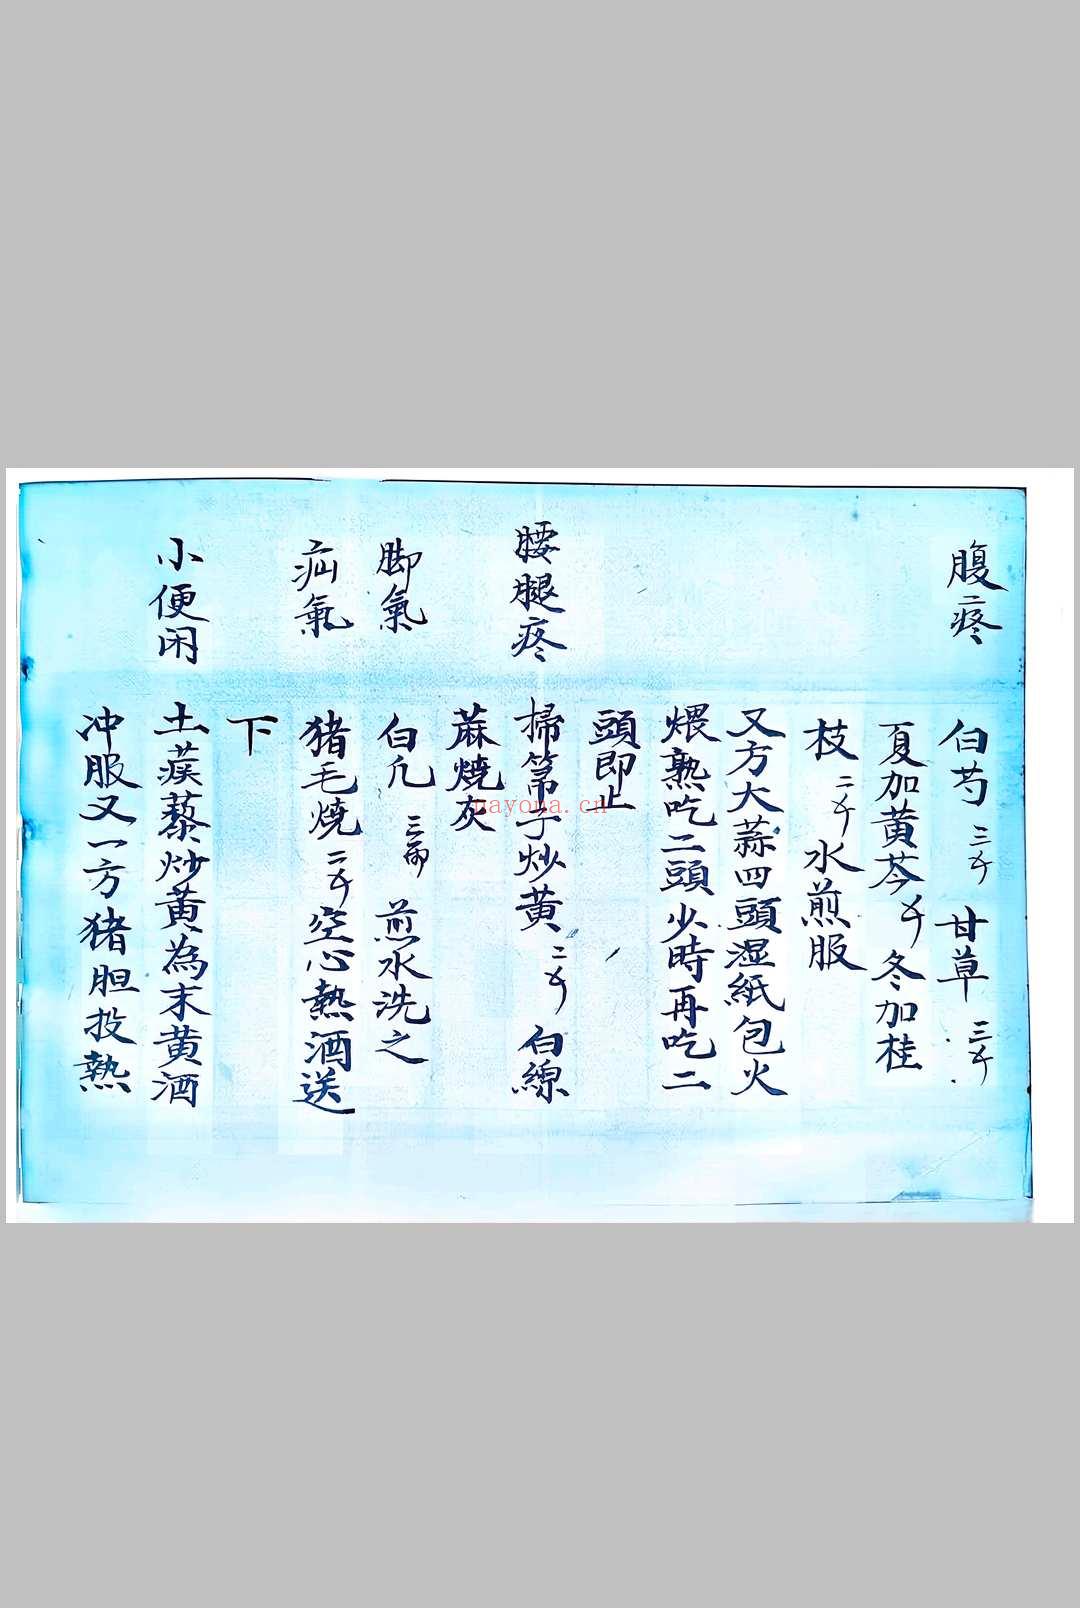 腹疼
白芍 三𠂆 甘草 三𠂆
夏加黄芩 𠂆 冬加桂
枝 二𠂆 水煎服
又方大蒜四頭湿紙包火
煨熟吃二頭少時再吃二
頭即止
腰腿疼
掃帚子炒黄 二𠂆 白線
蔴燒灰
脚氣
白凢 三兩 煎水洗之
疝氣
猪毛燒 二𠂆 空心熱酒送
下
小便闭
土蒺藜炒黄為末黄酒
冲服又一方猪胆投熱
nayona.cn